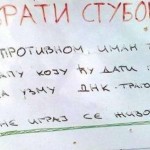 РАТИ СТУБО
ПРОТИВНОМ, ИМАМ Т
АПУ КОЈУ ЋУ ДАТИ
ЗА УЗМУ ДНК-ТРАГО
НЕ ИГРАЈ СЕ ЖИВО